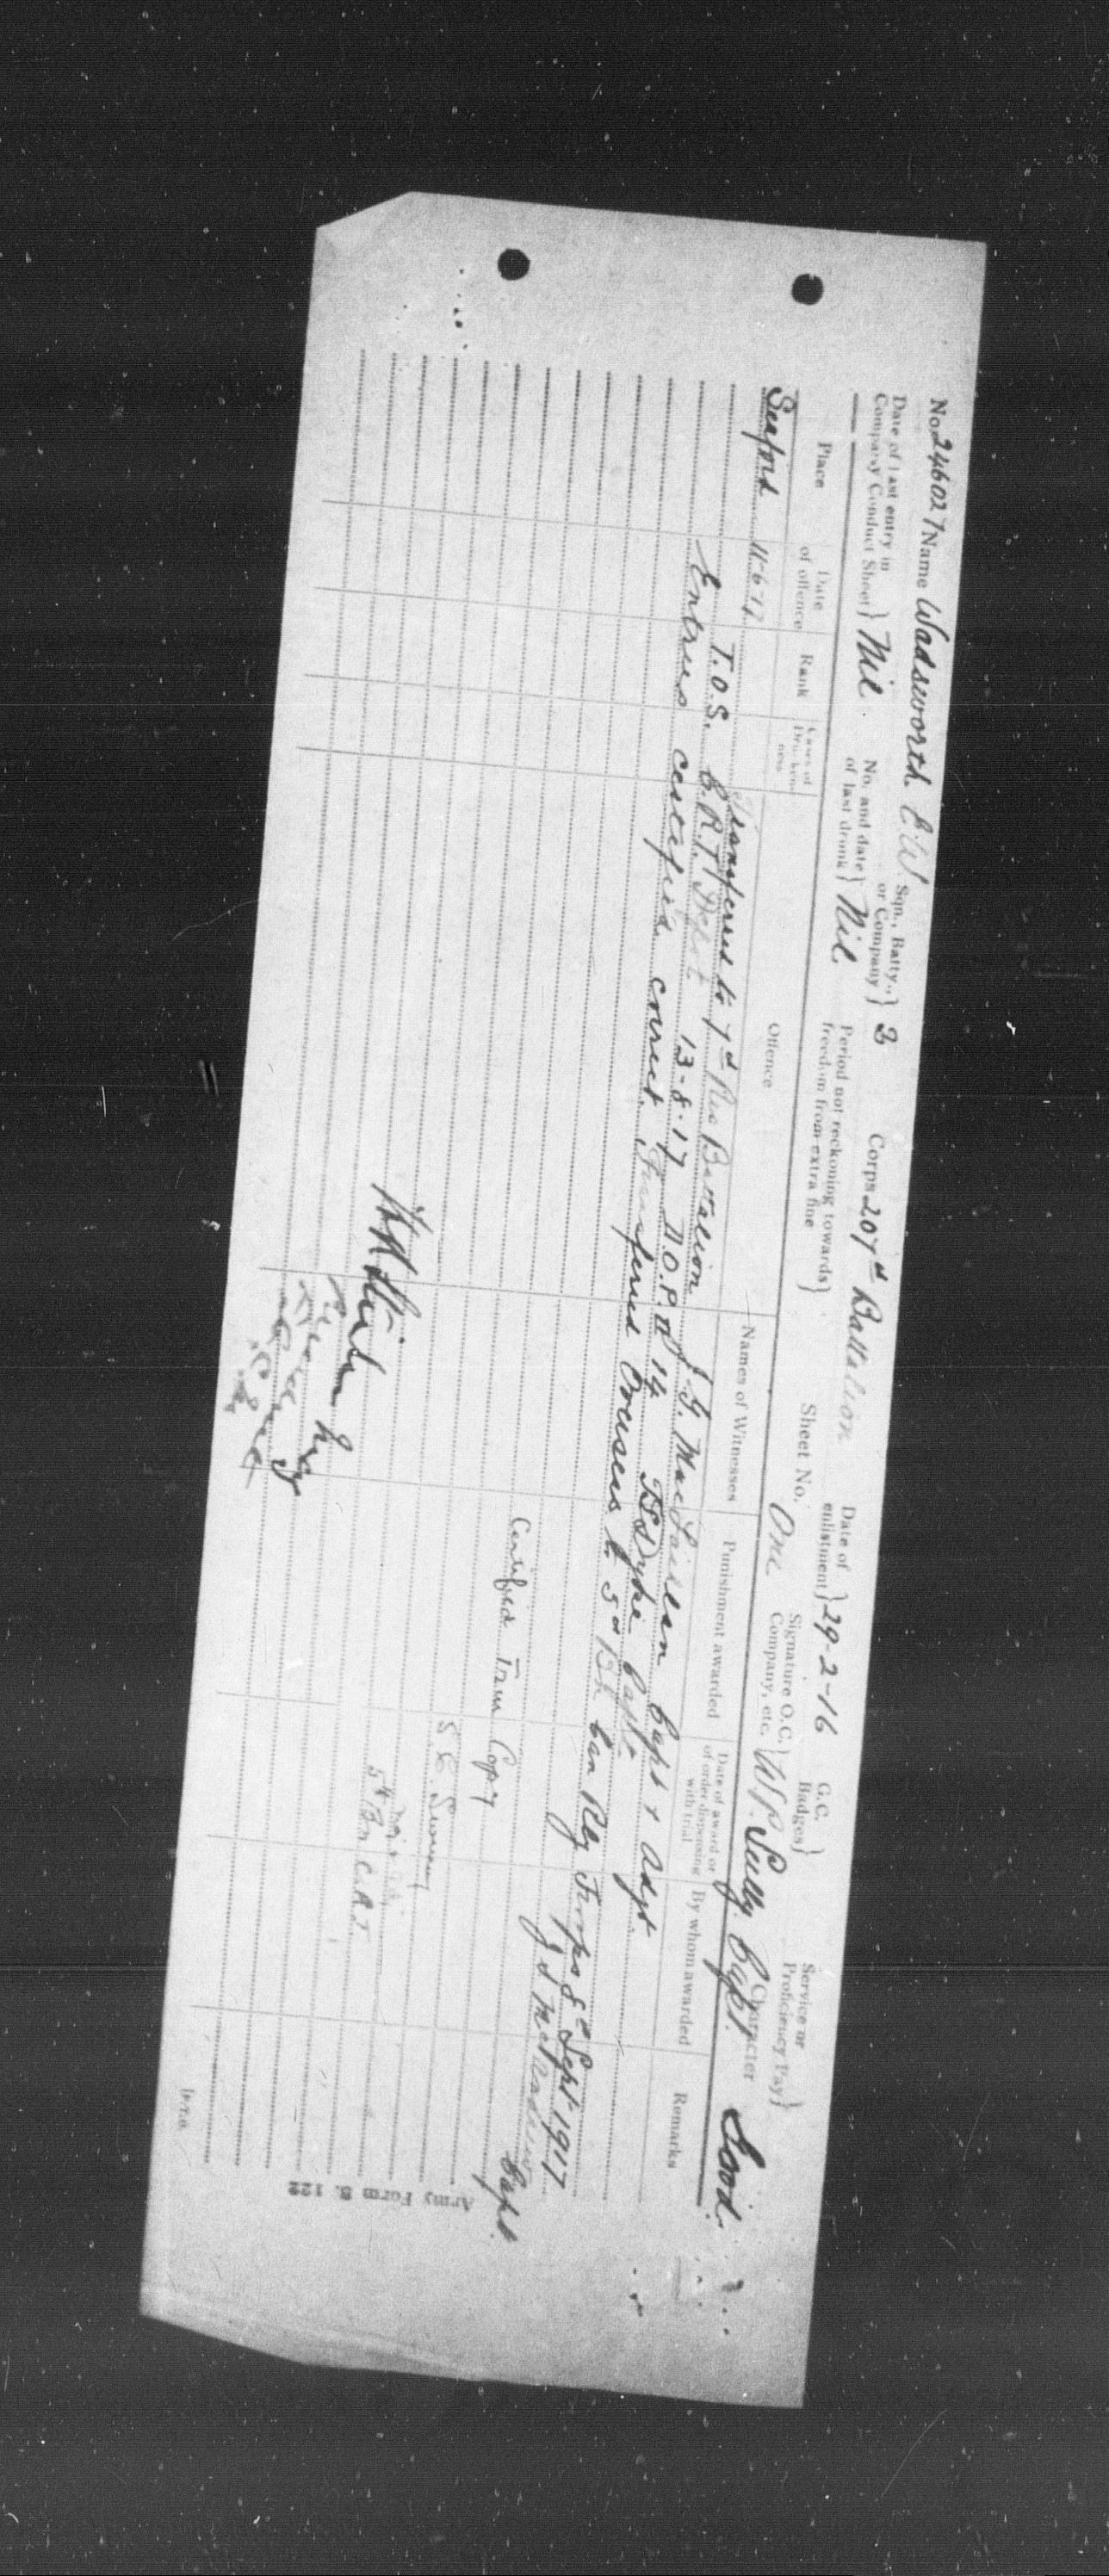 No. 246027 Name Wadsworth. E.W. Sqn., Batty., or Company } B Corps 207th Battalion Date of enlistment } 29-2-16 G.C. Badges } Service or Proficiency Pay }
Date of last entry in Company Conduct Sheet } Nil. No. and date of last drunk } Nil. Period not reckoning towards freedom from extra fine } Sheet No. One Signature O.C. Company, etc. } Scully Capt. Character Good.
Place Date of offence Rank Cases of Drunkenness Offence Names of Witnesses Punishment awarded Date of award or of order dispensing with trial By whom awarded Remarks
Seaford 11-6-17 Transferred to 7th Res Battalion J. G. Capt & Adjt.
T.O.S. C.R.T. Depot 13-8-17 D.O.P. II 14 Capt.
Entries certified correct. Transferred Overseas to 5th Bn Can Rly Troops 8th Sept 1917
Capt.
Certified True Copy
5th Bn C.R.T.
Army Form B. 122
[P.T.O.